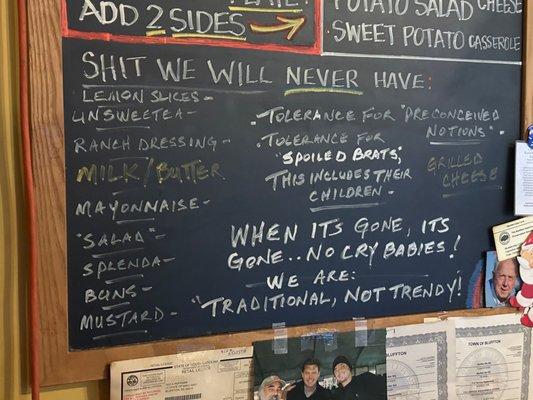 ADD 2 SIDES
POTATO SALAD CHEESE
SWEET POTATO CASSEROLE
SHIT WE WILL NEVER HAVE:
LEMON SLICES -
UNSWEETEA -
RANCH DRESSING -
MILK/BUTTER
MAYONNAISE -
"SALAD" -
SPLENDA -
BUNS -
MUSTARD -
- TOLERANCE FOR "PRECONCEIVED
NOTIONS" -
- TOLERANCE FOR
"SPOILED BRATS",
THIS INCLUDES THEIR
CHILDREN -
GRILLED
CHEESE -
WHEN ITS GONE, ITS
GONE.. NO CRY BABIES!
- WE ARE:
"TRADITIONAL, NOT TRENDY!
RETAIL LICENSE
BLUFFTON
TOWN OF BLUFFTON